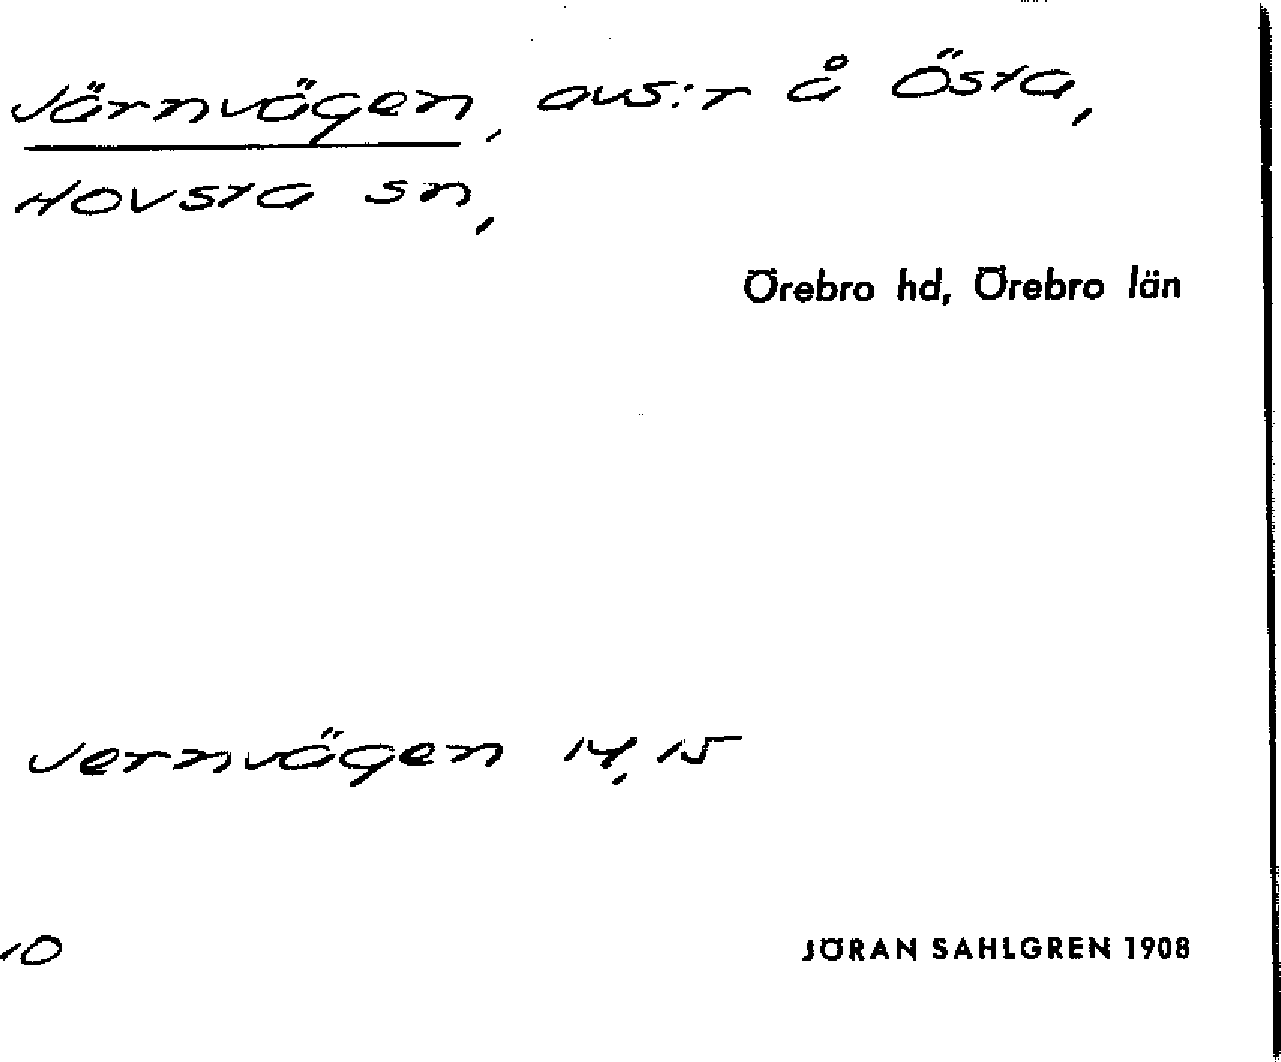 Järnvägen, avs:r å Östa,
Hovsta sn,
Örebro hd, Örebro län
Jernvägen 14, 15
10
JÖRAN SAHLGREN 1908